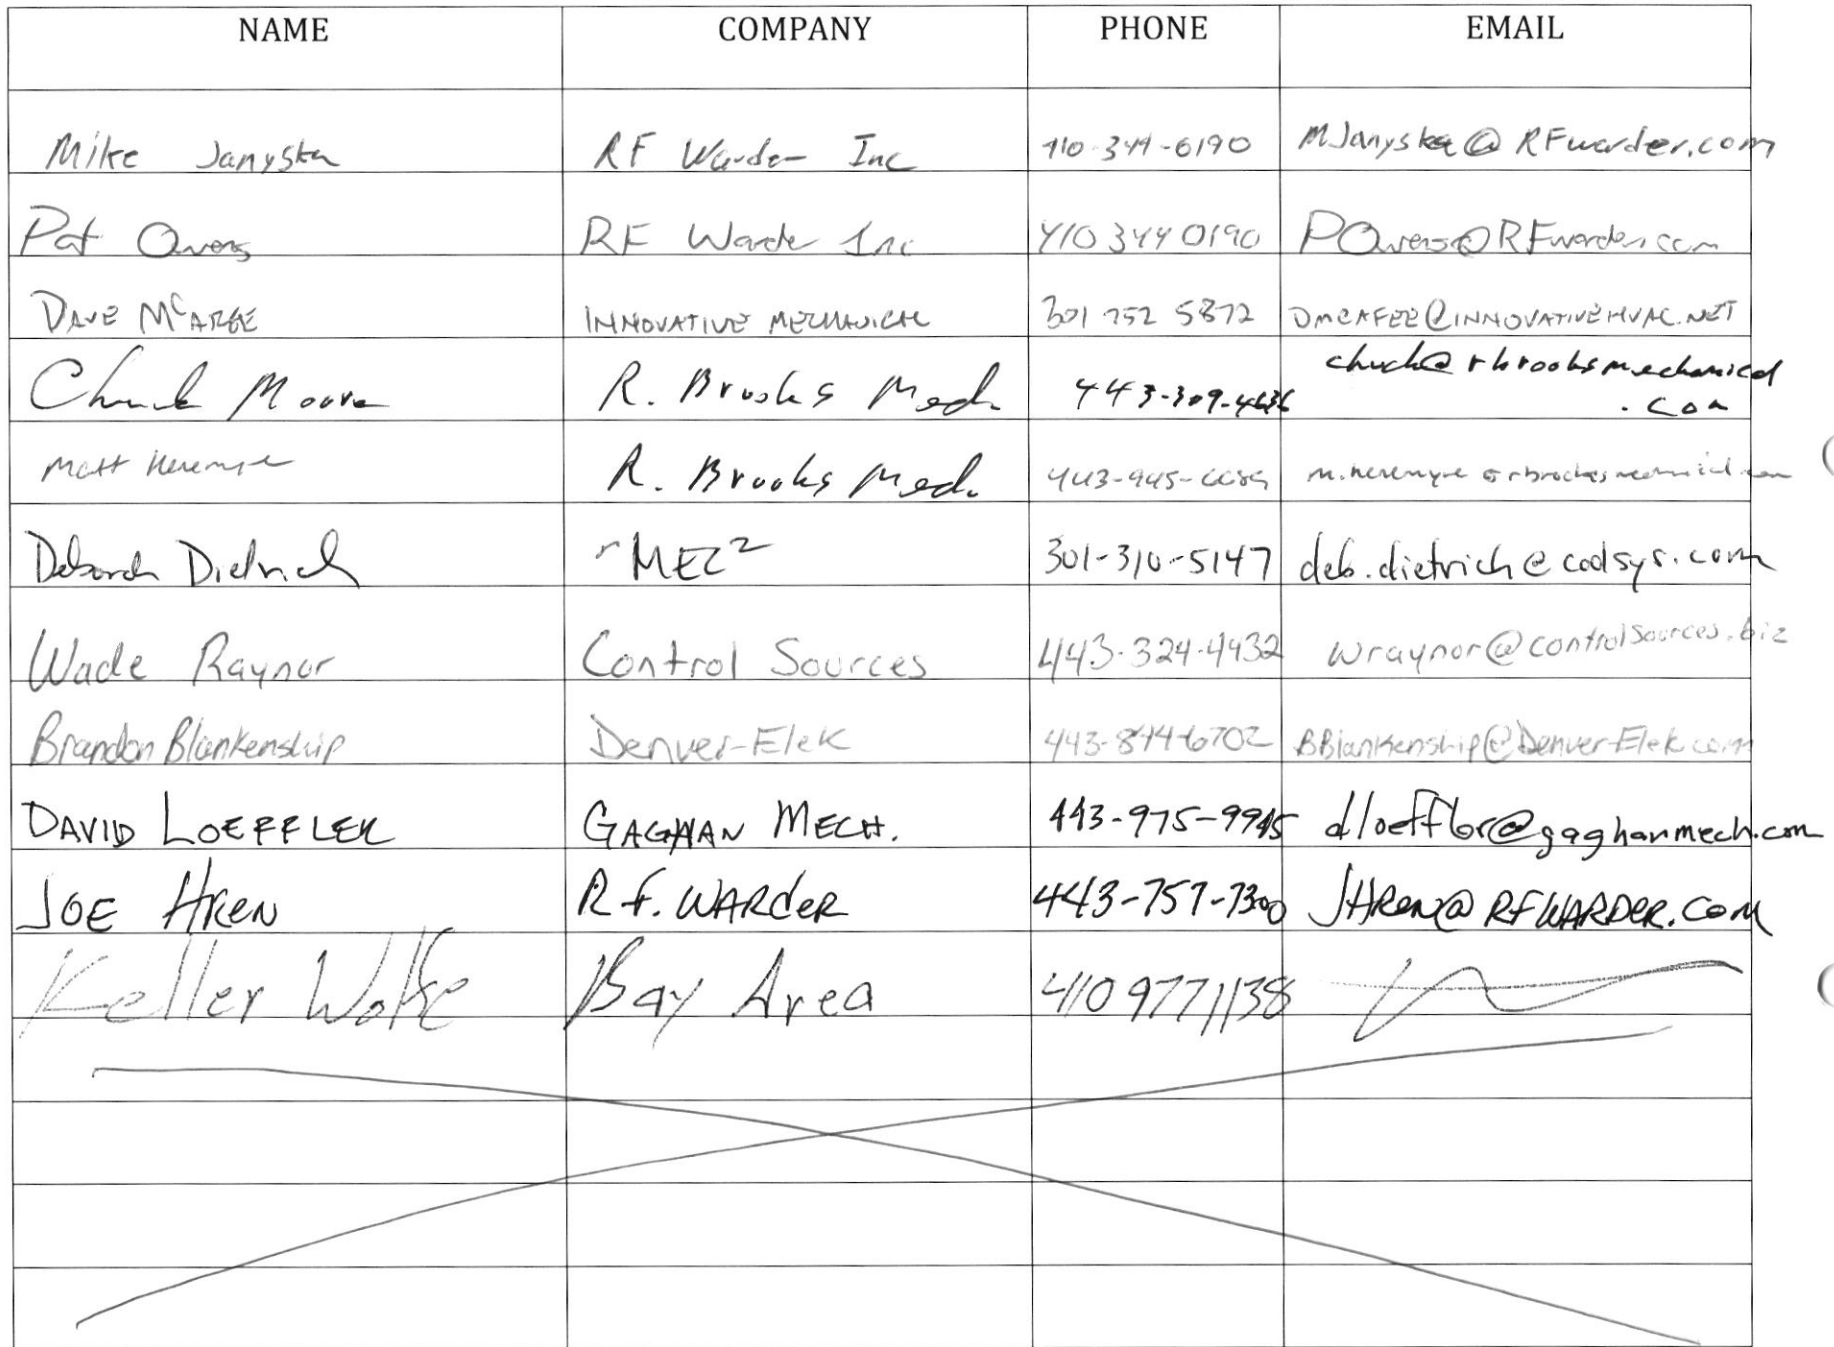 NAME COMPANY PHONE EMAIL
Mike Janyska RF Warder Inc 410-344-0190 MJanyska@RFwarder.com
Pat Owens RF Warder Inc 410 344 0190 POwens@RFwarder.com
DAVE McAFEE INNOVATIVE MECHANICAL 301 752 5872 DMCAFEE@INNOVATIVEHVAC.NET
Chuck Moore R. Brooks Mech. 443-309-4636 chuck@rbrooksmechanical
.com
Matt R. Brooks Mech.
Deborah Dietrich MEC² 301-310-5147 deb.dietrich@coolsys.com
Wade Raynor Control Sources 443-324-4432 wraynor@controlsources.biz
Brandon Blankenship Denver-Elek 443-844-6702 BBlankenship@Denver-Elek.com
DAVID LOEFFLER GAGHAN MECH. 443-975-9945 dloeffler@gaghanmech.com
JOE HREN R.F. WARDER 443-757-7300 JHren@RFWARDER.COM
Keller Wolfe Bay Area 410 9771138